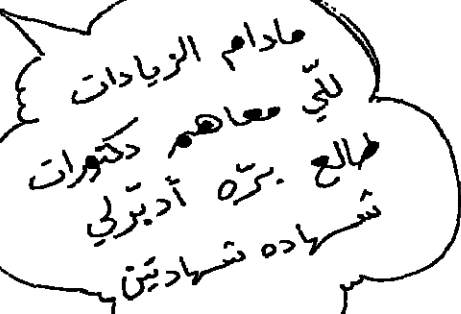 مادام الزيادات
للّي معاهم دكتورات
طالع برّه أدبّرلي
شهاده شهادتين